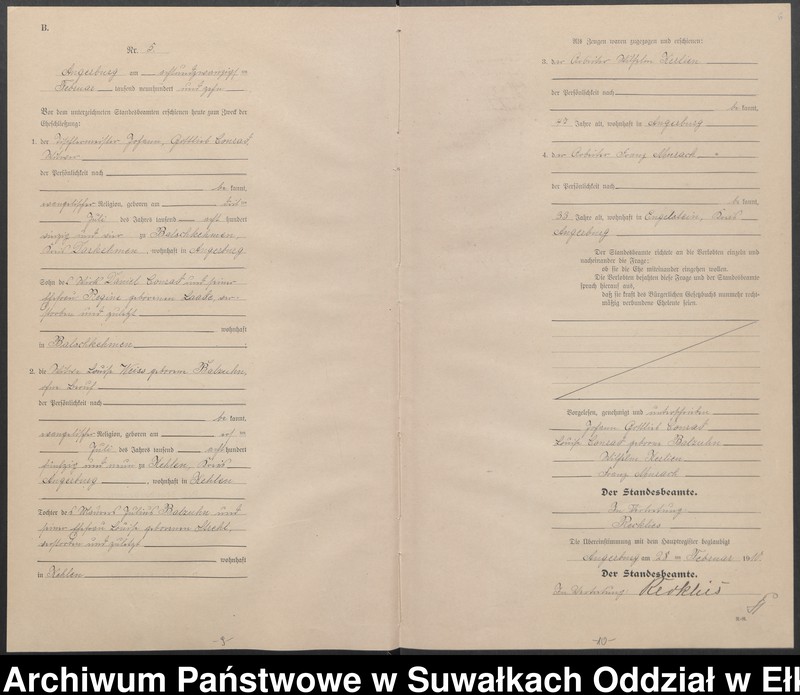 B.
Nr. 5.
Angerburg am achtundzwanzigsten
Februar tausend neunhundert und zehn
Vor dem unterzeichneten Standesbeamten erschienen heute zum Zweck der
Eheschließung:
1. der Tischlermeister Johann, Gottlieb Conrad,
Witwer
der Persönlichkeit nach
be kannt,
evangelischer Religion, geboren am
Juli des Jahres tausend acht hundert
vierzig und vier zu Balschkehmen,
Kreis Darkehmen, wohnhaft in Angerburg
Sohn des Wirts Daniel Conrad und seiner
Ehefrau Regine geborenen Laade, ver-
storben und zuletzt
wohnhaft
in Balschkehmen
2. die Witwe Louise Weiss geborene Balzuhn,
ohne Beruf
der Persönlichkeit nach
be kannt,
evangelischer Religion, geboren am
Juli des Jahres tausend acht hundert
fünfzig und neun zu Kehlen, Kreis
Angerburg, wohnhaft in Kehlen
Tochter des Maurers Julius Balzuhn und
seiner Ehefrau Louise geborenen
verstorben und zuletzt
wohnhaft
in Kehlen
-9-
6
Als Zeugen waren zugezogen und erschienen:
3. der Arbeiter Wilhelm Kerlien
der Persönlichkeit nach
be kannt,
47 Jahre alt, wohnhaft in Angerburg
4. der Arbeiter Franz
der Persönlichkeit nach
be kannt,
33 Jahre alt, wohnhaft in Engelstein, Kreis
Angerburg
Der Standesbeamte richtete an die Verlobten einzeln und
nacheinander die Frage:
ob sie die Ehe miteinander eingehen wollen.
Die Verlobten bejahten diese Frage und der Standesbeamte
sprach hierauf aus,
daß sie kraft des Bürgerlichen Gesetzbuchs nunmehr recht-
mäßig verbundene Eheleute seien.
Vorgelesen, genehmigt und unterschrieben
Johann Gottlieb Conrad
Louise Conrad geborene Balzuhn
Wilhelm Kerlien
Franz
Der Standesbeamte.
In Vertretung
Rekklies
Die Übereinstimmung mit dem Hauptregister beglaubigt
Angerburg am 28 ten Februar 1910.
Der Standesbeamte.
In Vertretung Rekklies
-10-
Archiwum Państwowe w Suwałkach Oddział w Eł